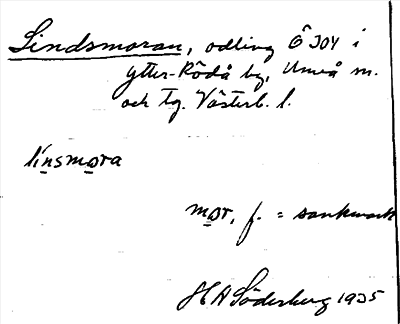 Lindsmoran, odling Ö 304 i
ytter-Rödå by, Umeå m.
och tg. Västerb. l.
línsmo̲ra
mo̲r, f. = sankmark
H A Söderberg 1935